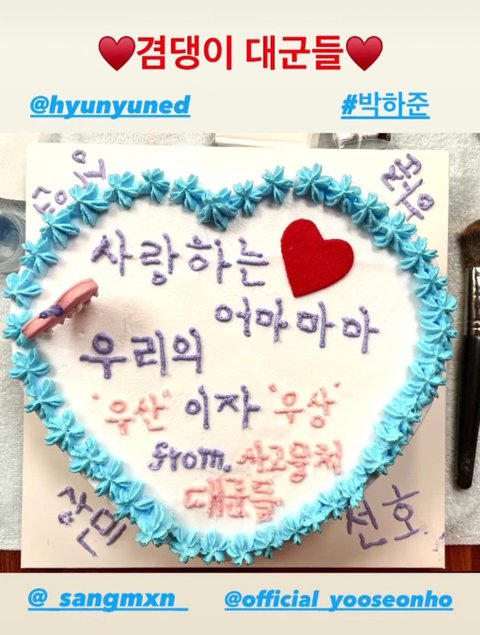 ♥겸댕이 대군들♥
@hyunyuned
#박하준
사랑하는
어마마마
우리의
'우산' 이자 '우상'
from. 사고뭉치
대군들
상민
선호
@_sangmxn_
@official_yooseonho